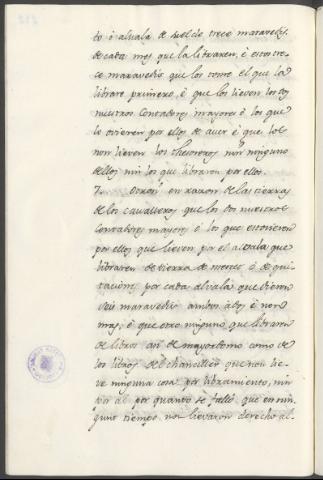 to ó alvala de sueldo, trece maravedis,
de cada mes que la libraren, é estos tre-
ce maravedis que los tome el que la
librare primero, é que los lieven los dos
nuestros Contadores mayores ó los que
lo ovieren por ellos de aver é que los
non lieven los Thesoreros nin ninguno
dellos nin los que libraron por ellos.
7. Otrosi en razon de las tierras
de los cavalleros que los dos nuestros
Contadores mayores ó los que estovieren
por ellos, que lieven por el alvala que
libraren de tierra de merced ó de qui-
taciones por cada alvala que dieren
seis maravedis ambos á dos é non
mas; é que otro ninguno que libraren
de libros asi de mayordomo como de
los libros del chanciller que non lie-
ve ninguna cosa por libramiento, nin
por al por quanto se falló que en nin-
gunt tiempo non llevaron derecho al-